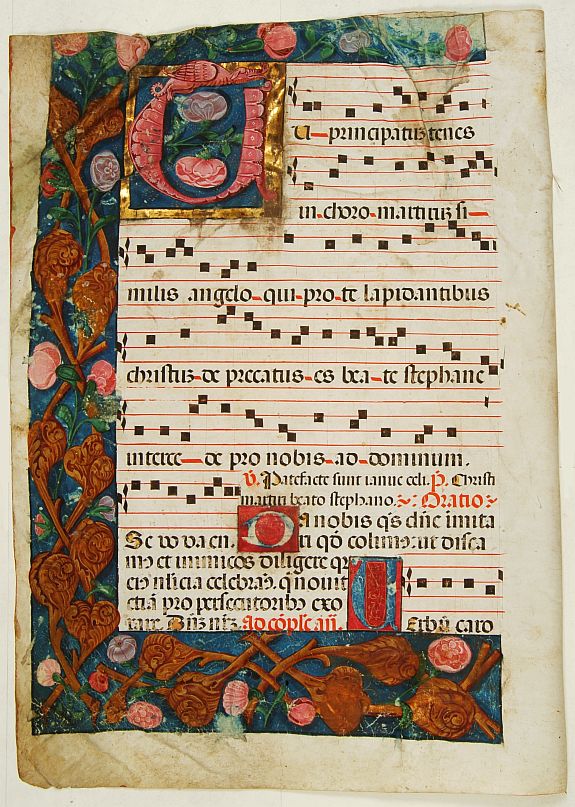 Tu principatus tenes
in choro martirus si
milis angelo qui pro te lapidantibus
christus de precatus es bea te stephane
interce de pro nobis ad dominum.
V. Patefacte sunt ianue celi. P. Christi
martiri beato stephano. Oratio
Da nobis qs dne imita
Se vo va en. ri qd colimus ut disca
mus et inimicos diligere qr
eius celebram. q novit
etiam pro persecutoribus exo
rare. ad
Verbu caro